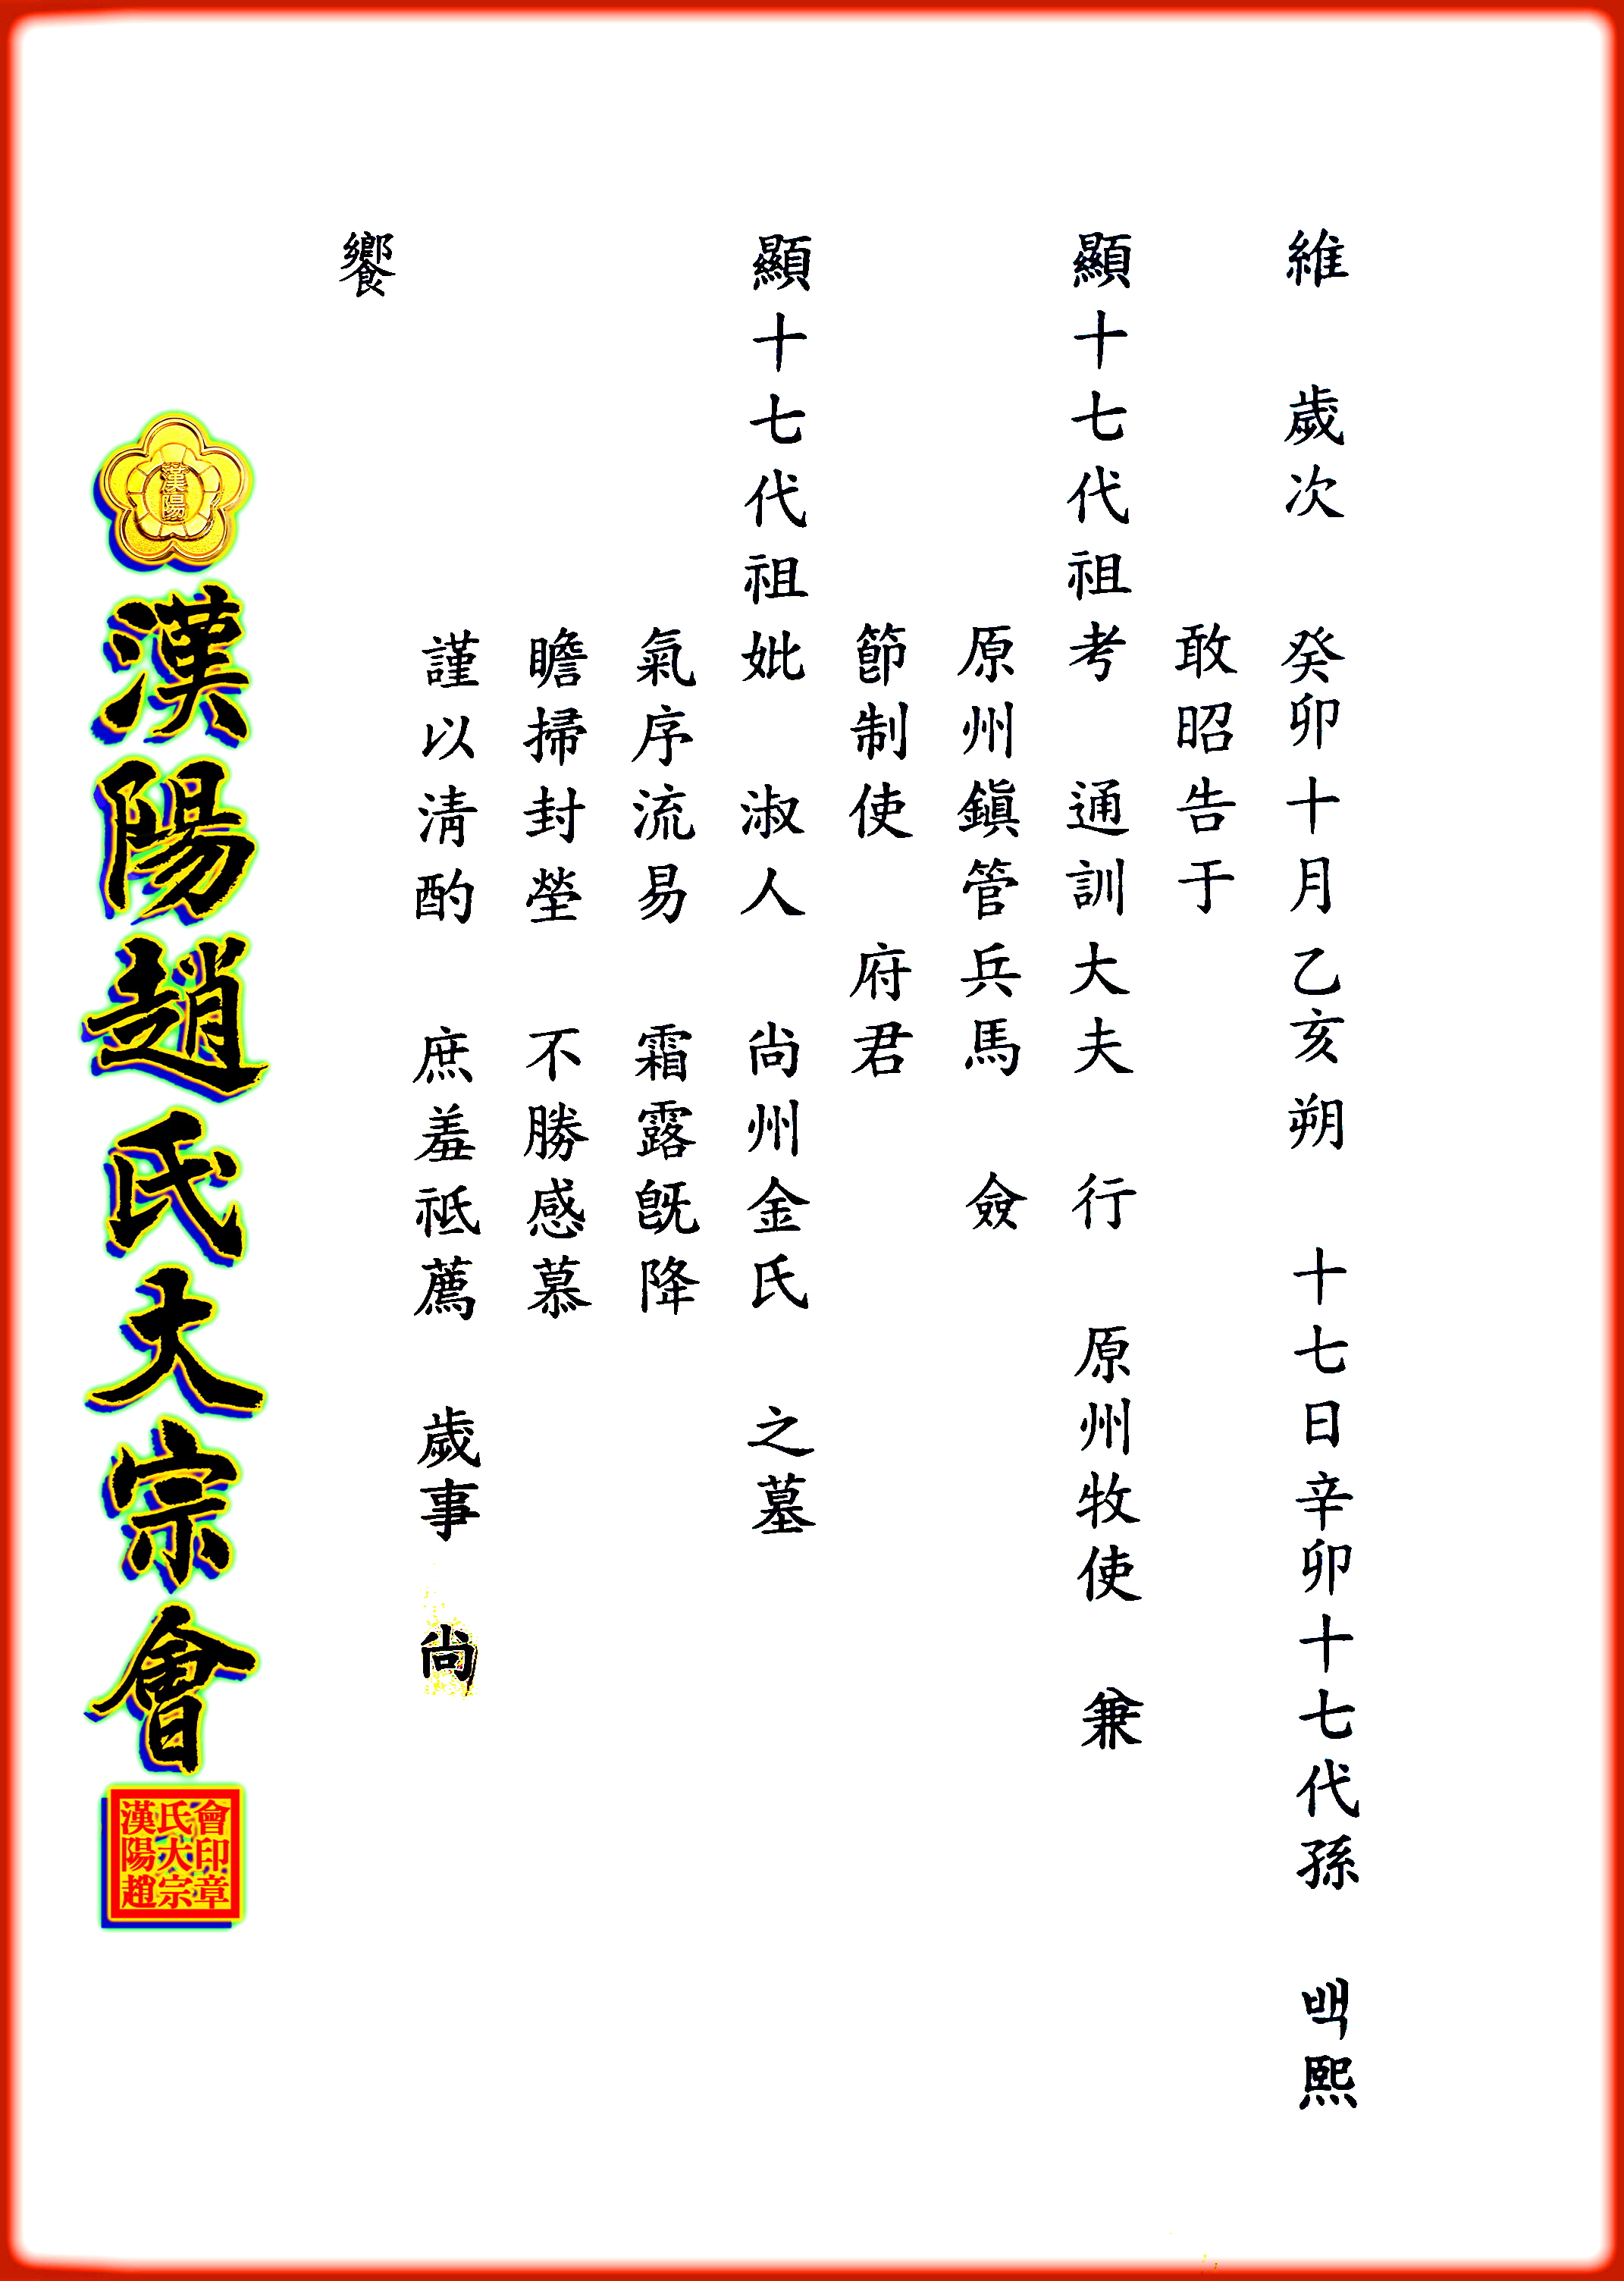 維 歲次 癸卯十月乙亥朔 十七日辛卯十七代孫 백熙
敢昭告于
顯十七代祖考 通訓大夫 行 原州牧使 兼
原州鎭管兵馬 僉
節制使 府君
顯十七代祖妣 淑人 尙州金氏 之墓
氣序流易 霜露旣降
瞻掃封塋 不勝感慕
謹以淸酌 庶羞祗薦 歲事 尙
饗
漢陽
漢陽趙氏大宗會
會印章
氏大宗
漢陽趙